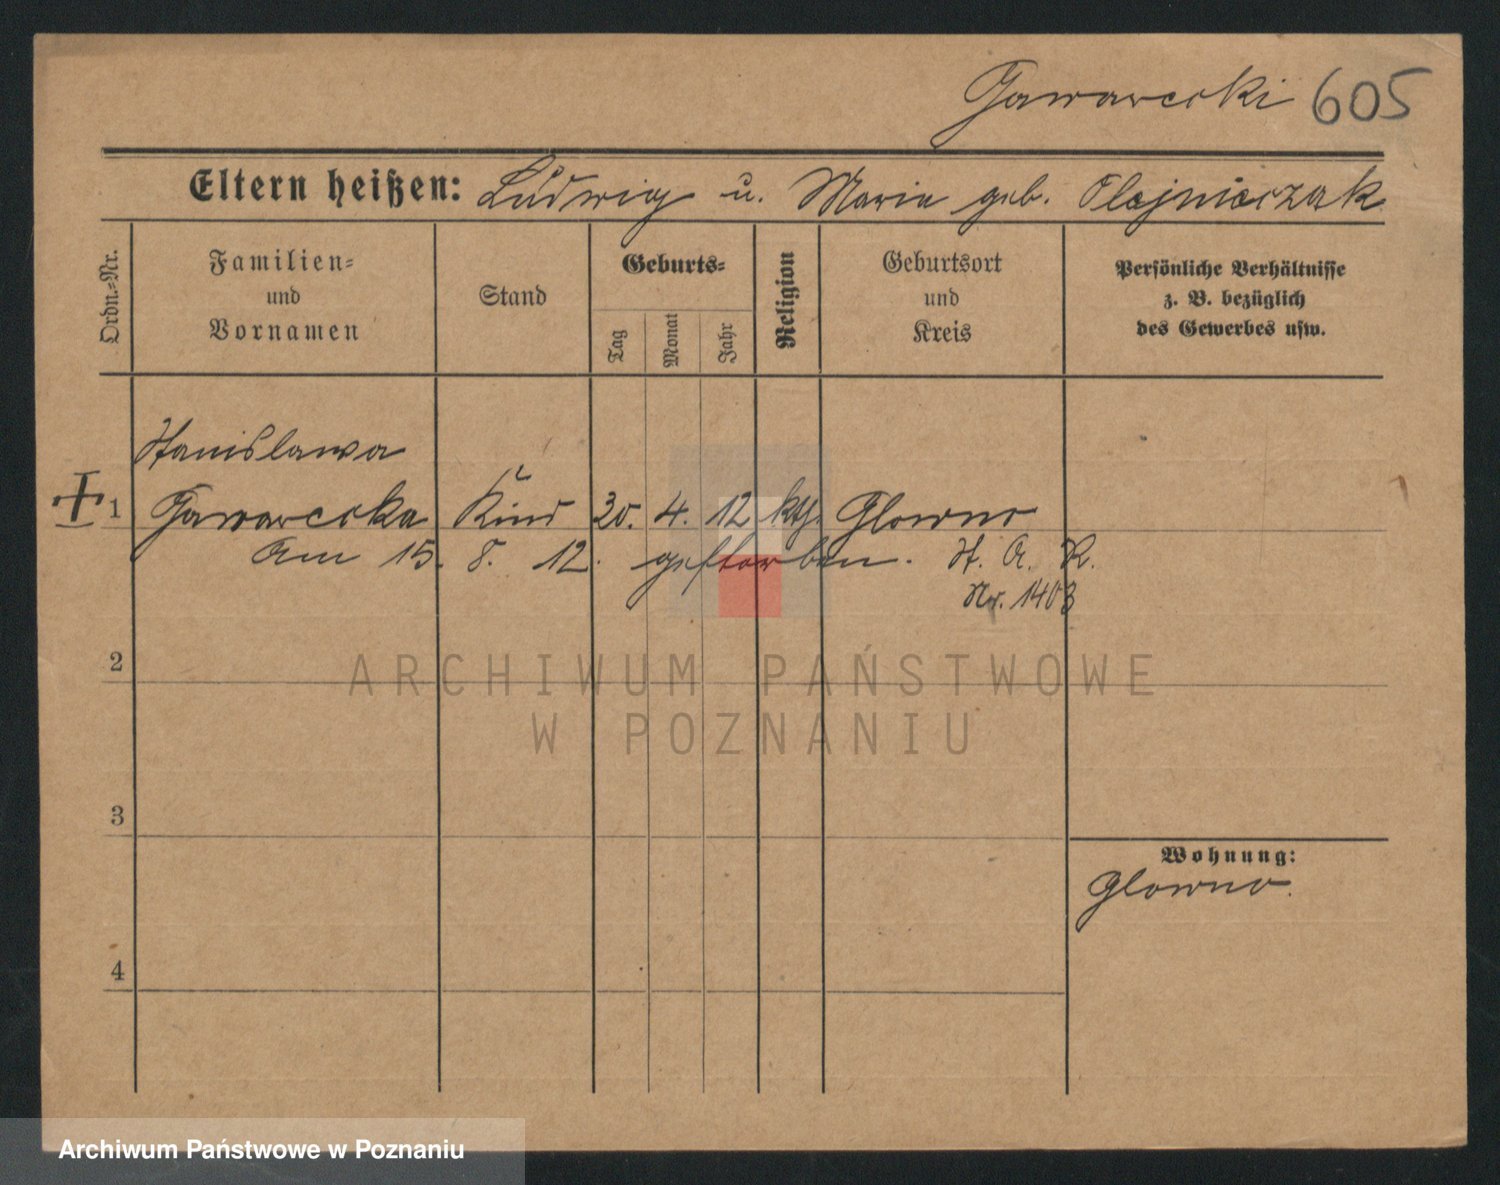 Gawarecki 605
Eltern heißen: Ludwig u. Maria geb. Olejniczak
Ordn.=Nr.
Familien=
und
Vornamen
Stand
Geburts=
Tag
Monat
Jahr
Religion
Geburtsort
und
Kreis
Persönliche Verhältnisse
z. B. bezüglich
des Gewerbes usw.
Stanislawa
1 Gawarecka Kind 30. 4. 12 kth. Glowno
am 15. 8. 12. gestorben. St. A. R.
Nr. 1403
2
3
4
Wohnung:
Glowno.
ARCHIWUM PAŃSTWOWE
W POZNANIU
Archiwum Państwowe w Poznaniu